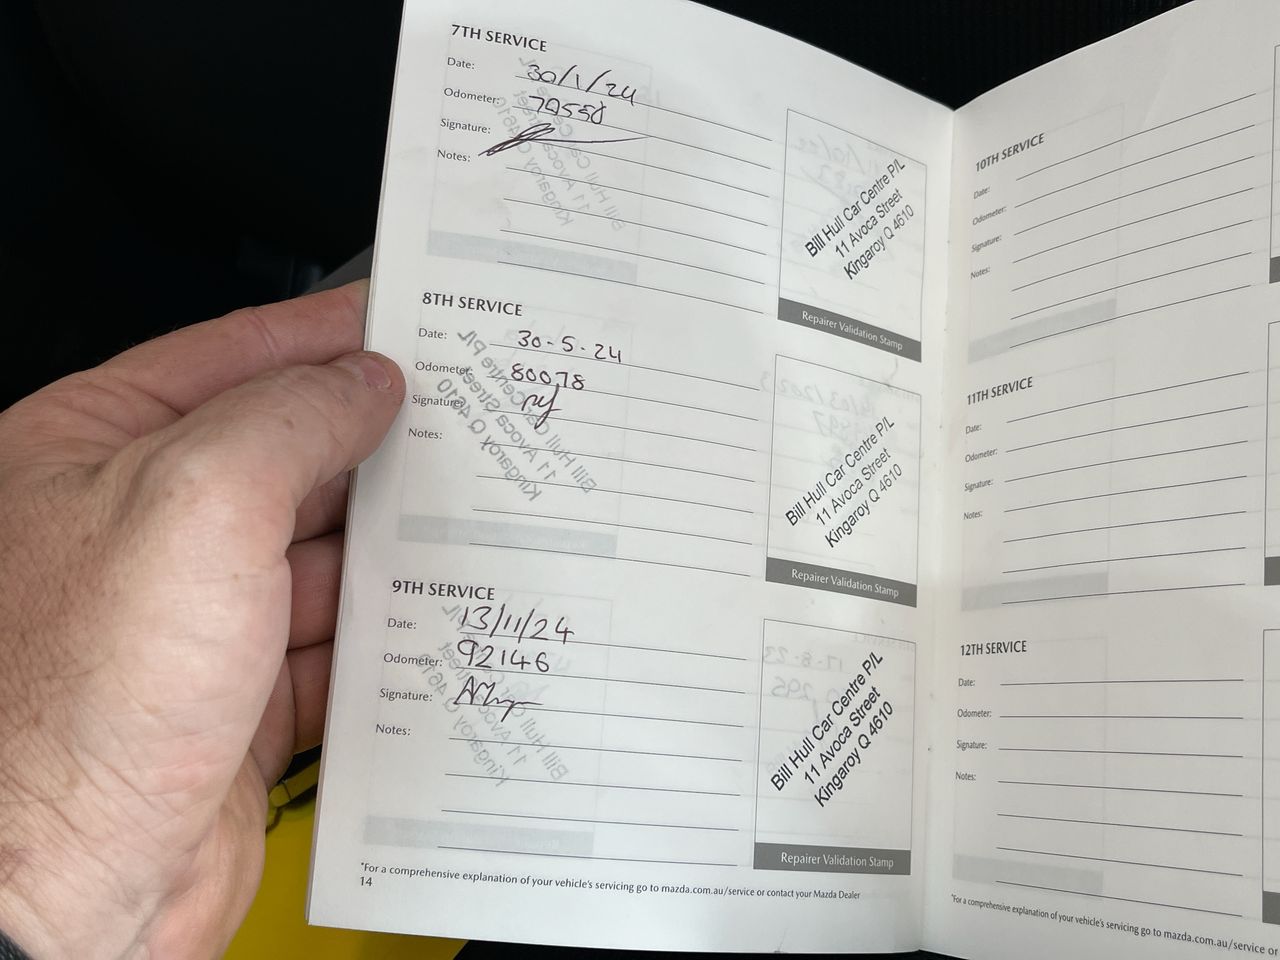 7TH SERVICE
Date: 30/1/24
Odometer: 70558
Signature:
Notes:
Bill Hull Car Centre P/L
11 Avoca Street
Kingaroy Q 4610
Repairer Validation Stamp
8TH SERVICE
Date: 30-5-24
Odometer: 80078
Signature:
Notes:
Bill Hull Car Centre P/L
11 Avoca Street
Kingaroy Q 4610
Repairer Validation Stamp
9TH SERVICE
Date: 13/11/24
Odometer: 92146
Signature:
Notes:
Bill Hull Car Centre P/L
11 Avoca Street
Kingaroy Q 4610
Repairer Validation Stamp
*For a comprehensive explanation of your vehicle's servicing go to mazda.com.au/service or contact your Mazda Dealer
14
10TH SERVICE
Date:
Odometer:
Signature:
Notes:
11TH SERVICE
Date:
Odometer:
Signature:
Notes:
12TH SERVICE
Date:
Odometer:
Signature:
Notes:
*For a comprehensive explanation of your vehicle's servicing go to mazda.com.au/service or